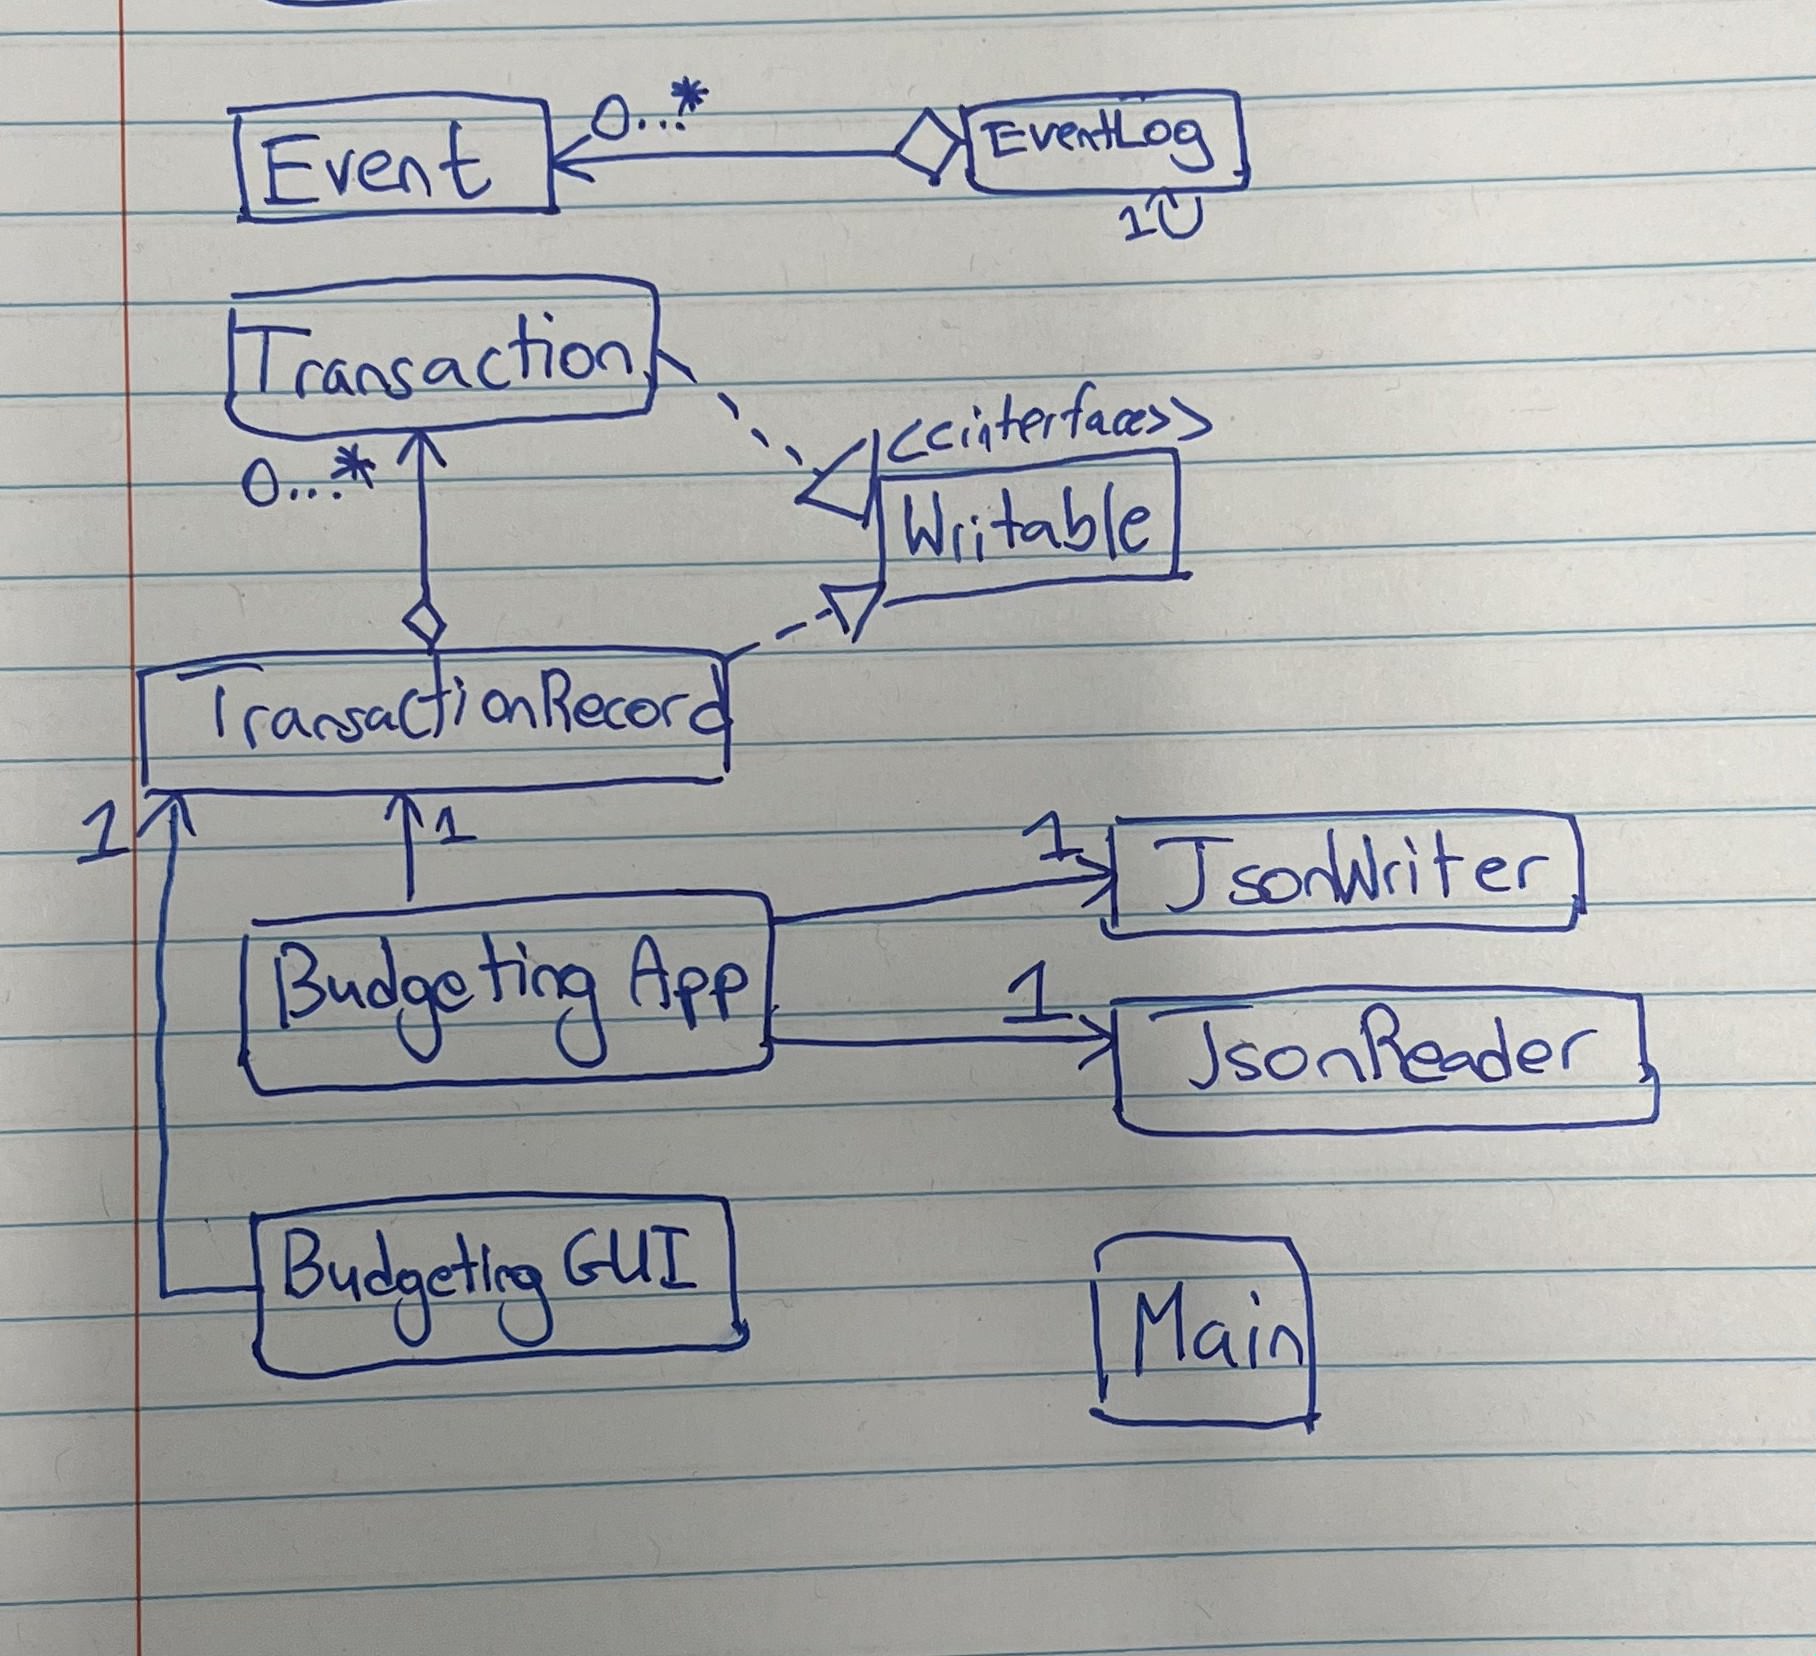 Event
0...*
EventLog
1
Transaction
0...*
<<interface>>
Writable
TransactionRecord
1
1
1
JsonWriter
Budgeting App
1
JsonReader
Budgeting GUI
Main